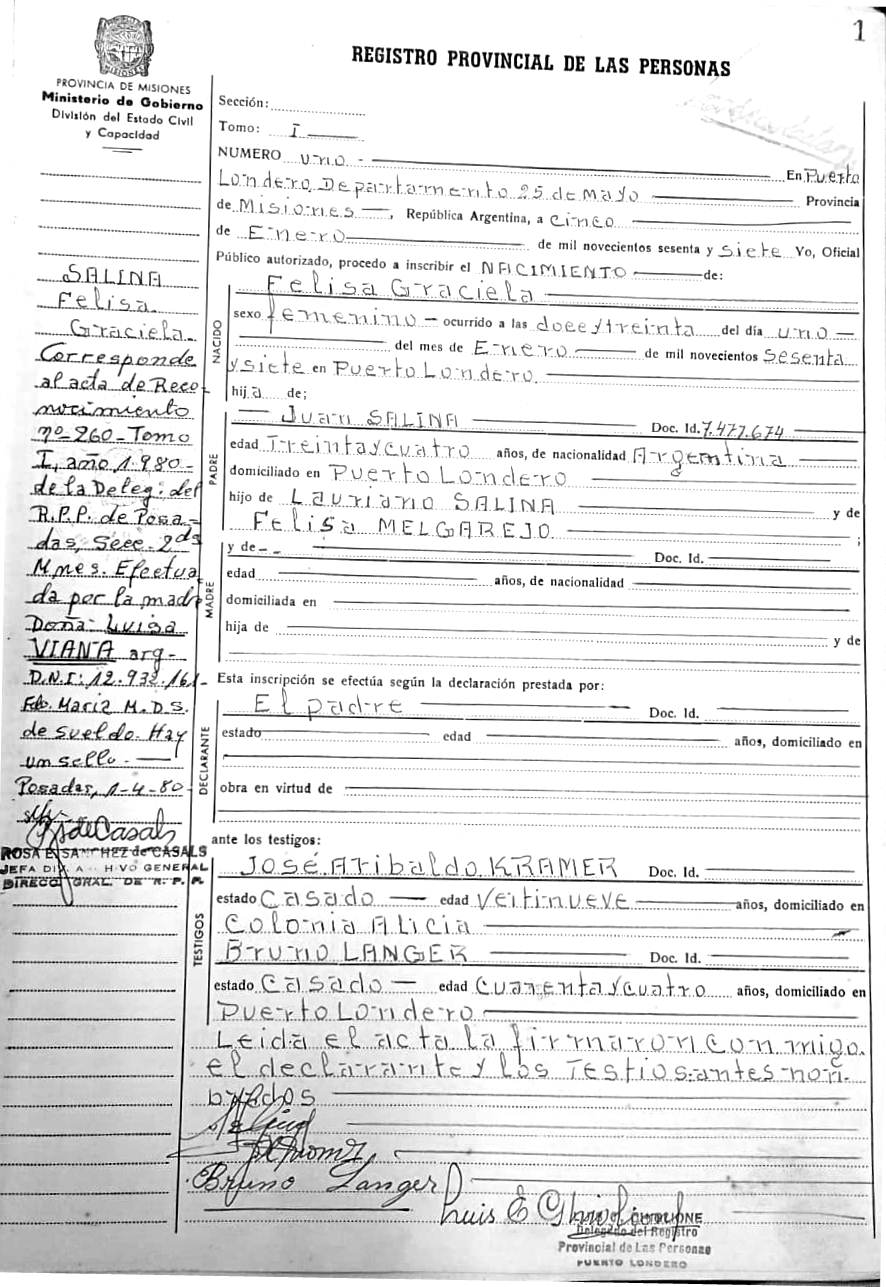 1
REGISTRO PROVINCIAL DE LAS PERSONAS
MISIONES
PROVINCIA DE MISIONES
Ministerio de Gobierno
División del Estado Civil
y Capacidad
SALINA
Felisa
Graciela
Corresponde
al acta de Reco-
nocimiento
nº 260 - Tomo
I, año 1.980 -
de la Deleg. del
R.P.P. de Posa-
das, Sece. 2da
Mnes. Efectua
da por la madre
Doña: Luisa
VIANA arg-
D.N.I: 12.932.161-
Fdo. Maria M.D.S.
de Sueldo. Hay
un sello. -
Posadas, 1-4-80-
R.S de Casals
ROSA E. SANCHEZ de CASALS
JEFA DIV. ARCHIVO GENERAL
DIRECC. GRAL. DE R. P. P.
Sección:
Tomo: I
NUMERO uno - En Puerto
Londero Departamento 25 de Mayo Provincia
de Misiones -, República Argentina, a cinco
de Enero de mil novecientos sesenta y siete Yo, Oficial
Público autorizado, procedo a inscribir el NACIMIENTO de:
NACIDO
Felisa Graciela
sexo femenino - ocurrido a las doce y treinta del día uno -
del mes de Enero de mil novecientos sesenta
y siete en Puerto Londero
hija de;
PADRE
Juan SALINA Doc. Id. 7.477.674
edad Treinta y cuatro años, de nacionalidad Argentina
domiciliado en Puerto Londero
hijo de Lauriano SALINA y de
Felisa MELGAREJO ;
MADRE
y de - - Doc. Id.
edad años, de nacionalidad
domiciliada en
hija de y de
Esta inscripción se efectúa según la declaración prestada por:
DECLARANTE
El padre Doc. Id.
estado edad años, domiciliado en
obra en virtud de
ante los testigos:
TESTIGOS
José Aribaldo KRAMER Doc. Id.
estado Casado edad Veitinueve años, domiciliado en
Colonia Alicia
Bruno LANGER Doc. Id.
estado Casado edad Cuarenta y cuatro años, domiciliado en
Puerto Londero
Leida el acta la firmaron con migo
el declarante y los Testios antes nom-
brados
Bruno Langer
Luis E Ghirol
Delegado del Registro
Provincial de Las Personas
PUERTO LONDERO